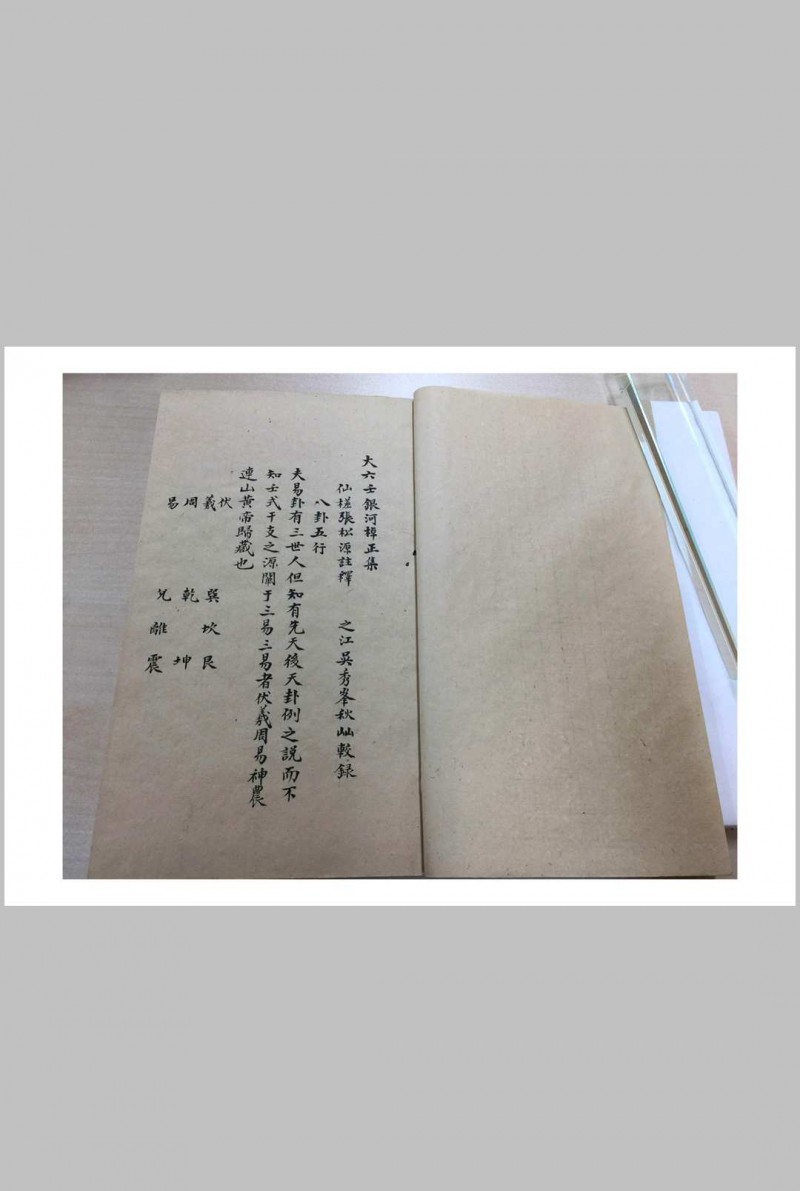 大六壬銀河棹正集
仙槎張松源註釋　之江吳秀峯秋山較錄
八卦五行
夫易卦有三世人但知有先天後天卦例之說而不
知壬式干支之源關于三易三易者伏羲周易神農
連山黃帝歸藏也
伏羲周易
巽乾兌
坎離
艮坤震